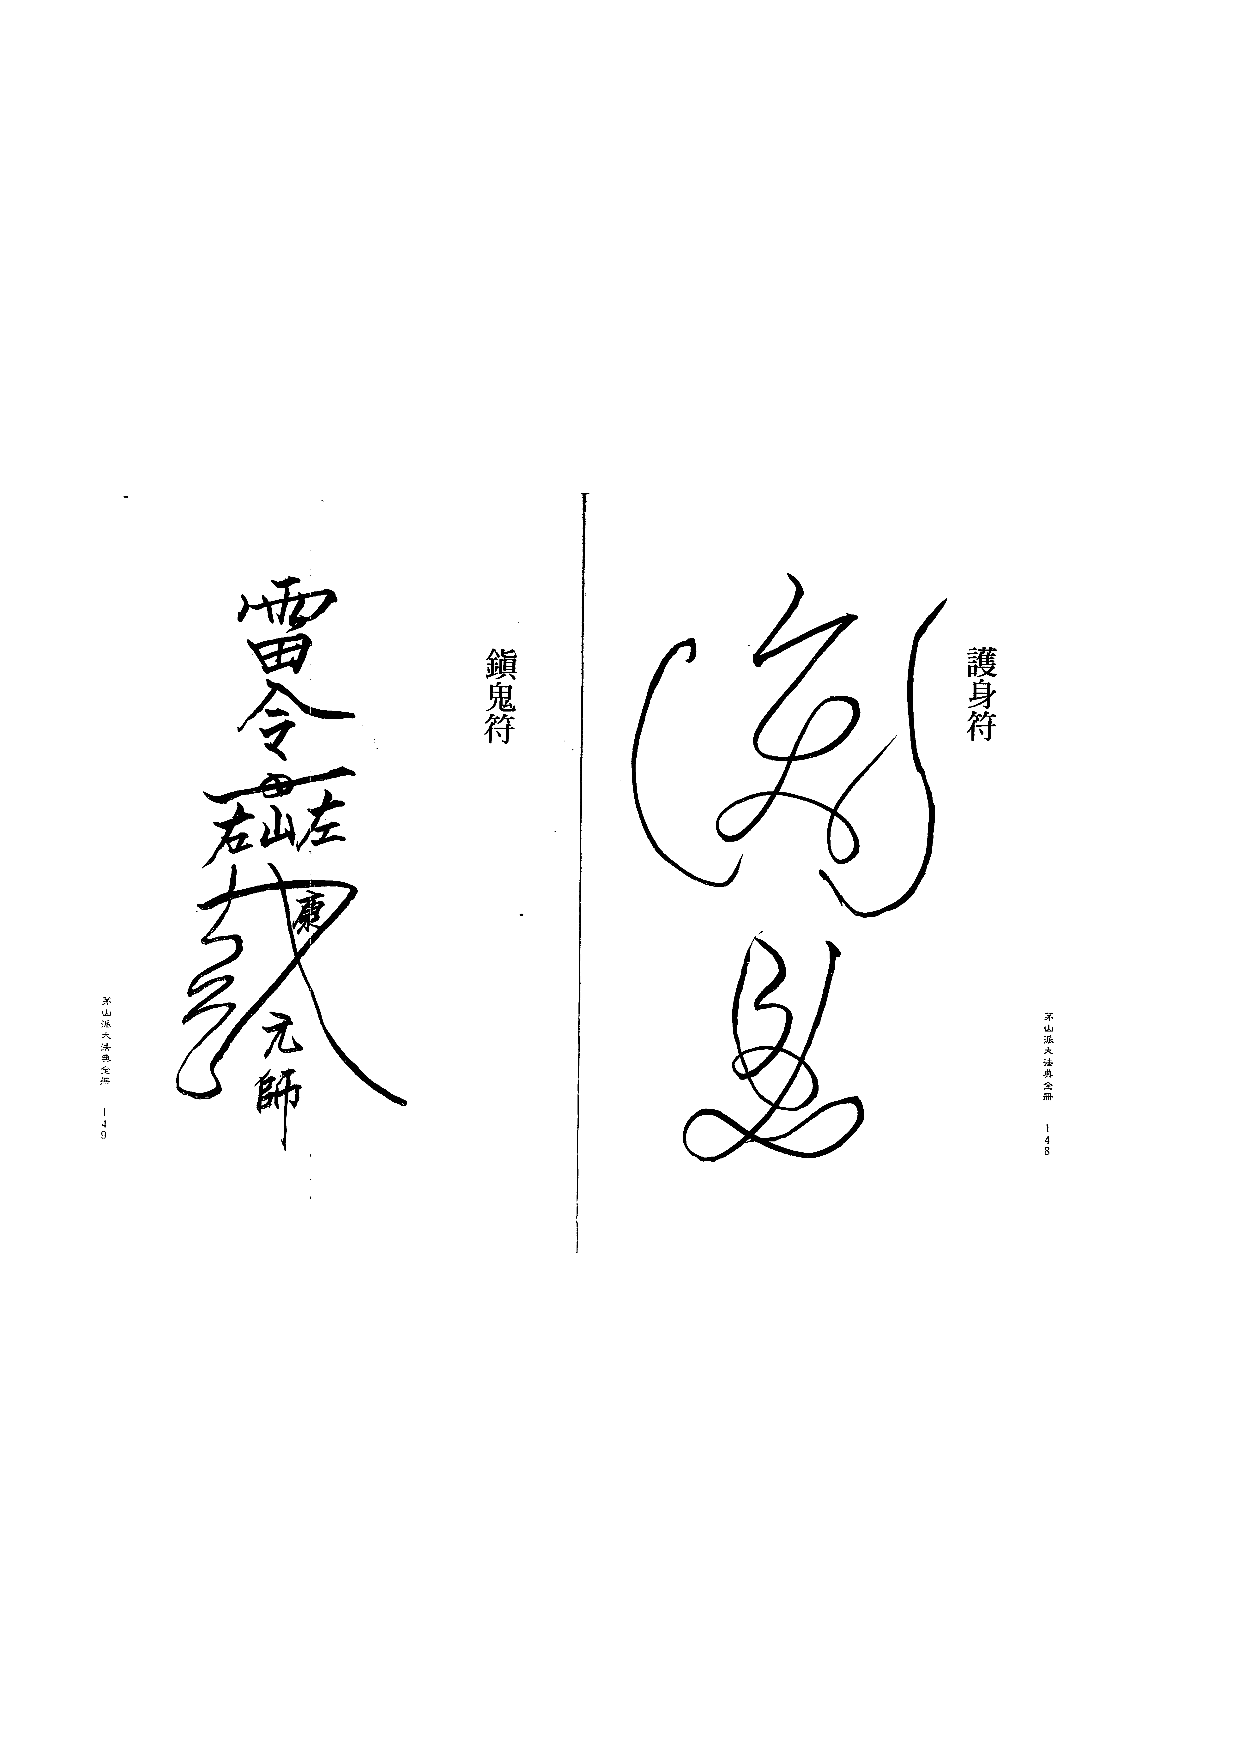 護身符
茅山派大法典全冊 148
鎭鬼符
雷令
右山左
康
元帥
茅山派大法典全冊 149